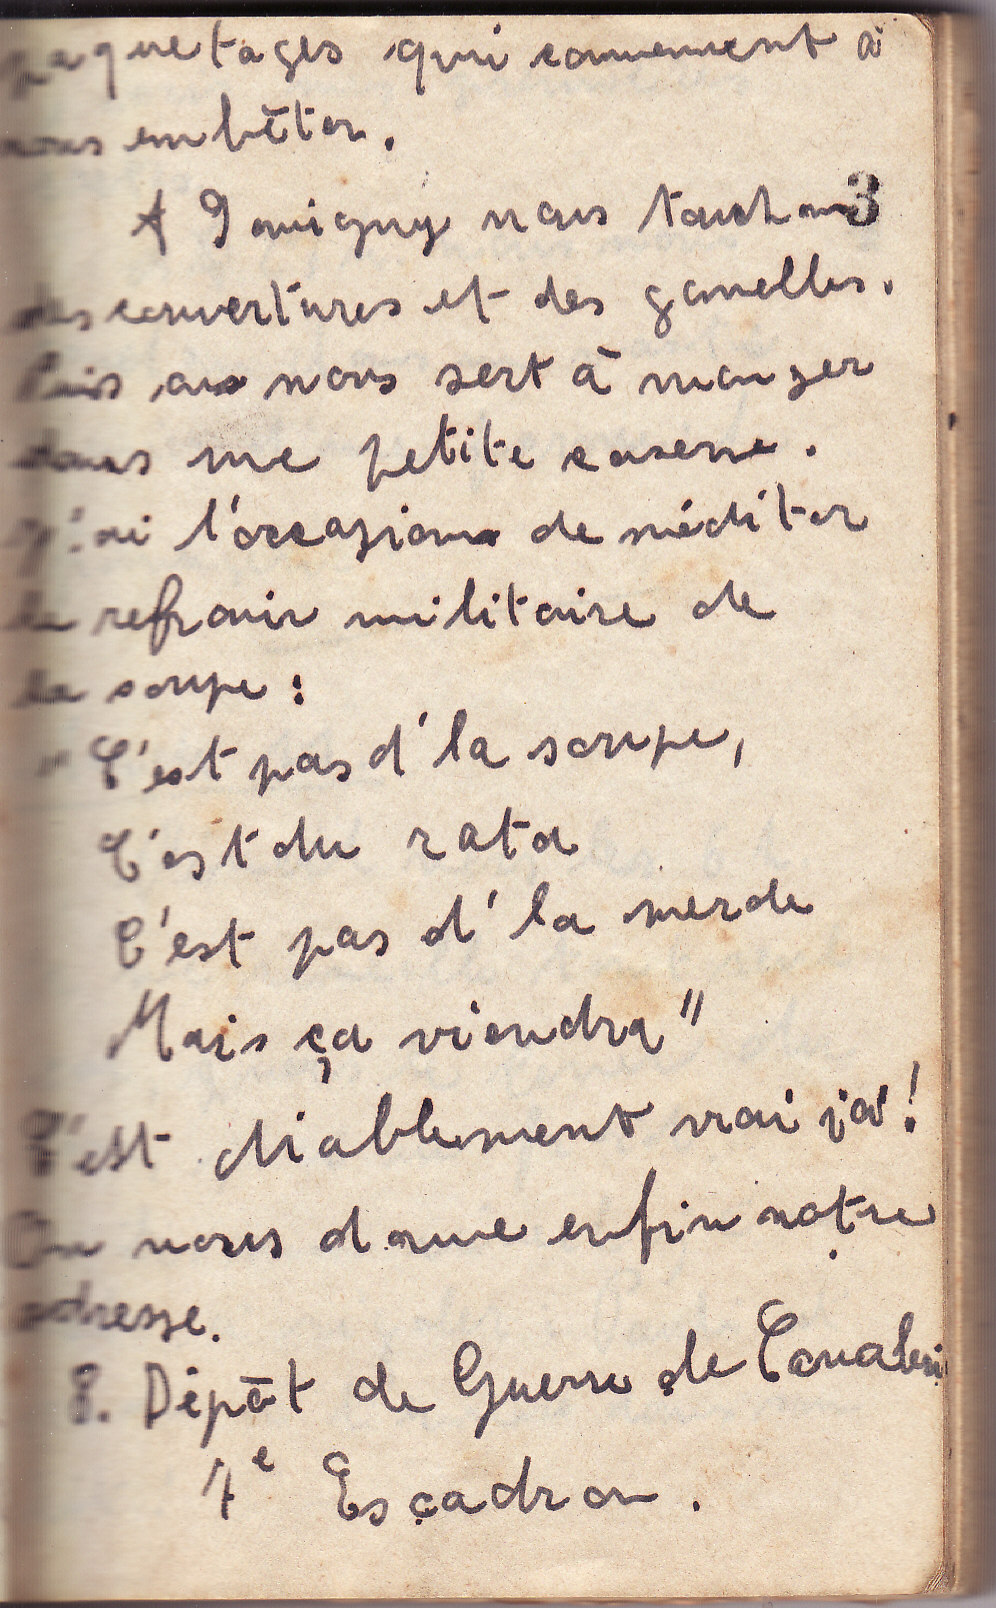 paquetages qui commencent à
nous embêter.
A Jamigny nous touchons
3
des couvertures et des gamelles.
Puis on nous sert à manger
dans une petite caserne.
J'ai l'occasion de méditer
le refrain militaire de
la soupe :
" C'est pas d' la soupe,
C'est du rata
C'est pas d' la merde
Mais ça viendra "
C'est diablement vrai ça !
On nous donne enfin notre
adresse.
8. Dépôt de Guerre de Cavalerie
7e Escadron.